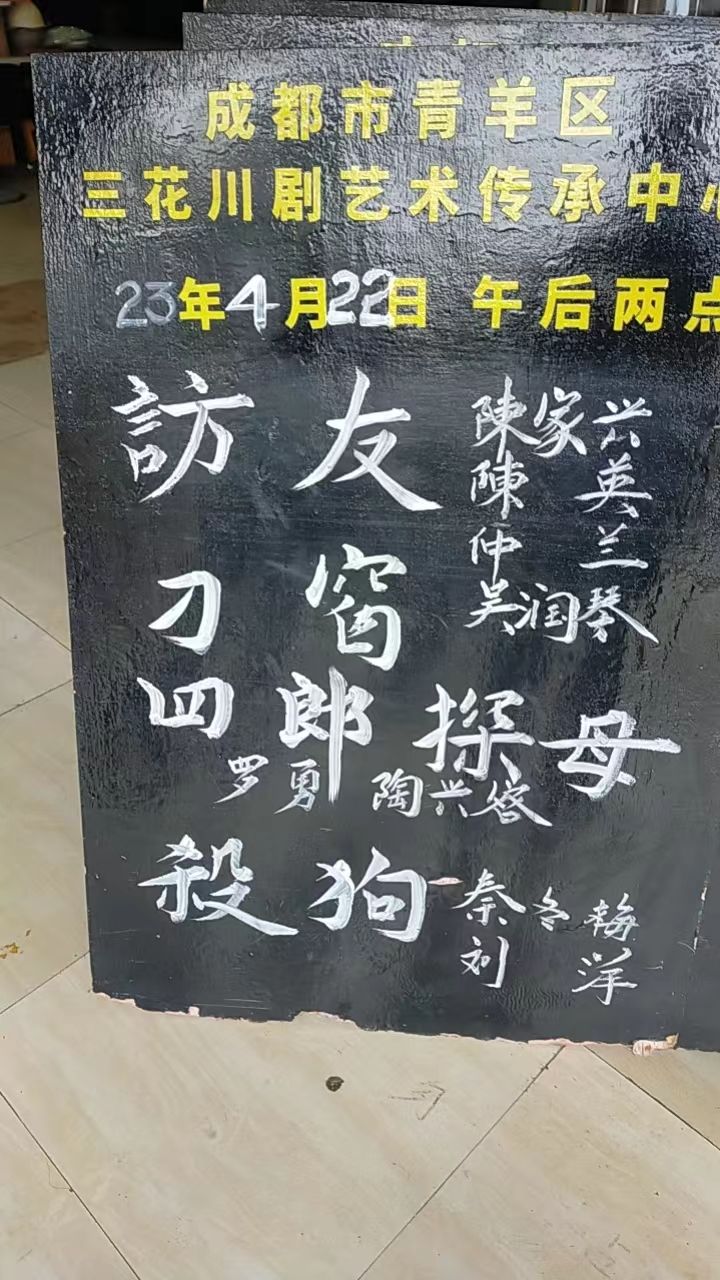 成都市青羊区
三花川剧艺术传承中心
23年4月22日 午后两点
訪友 陳家兴
陳英
仲兰
刁窗 吴润琴
四郎探母
罗勇 陶兴容
殺狗 秦冬梅
刘洋